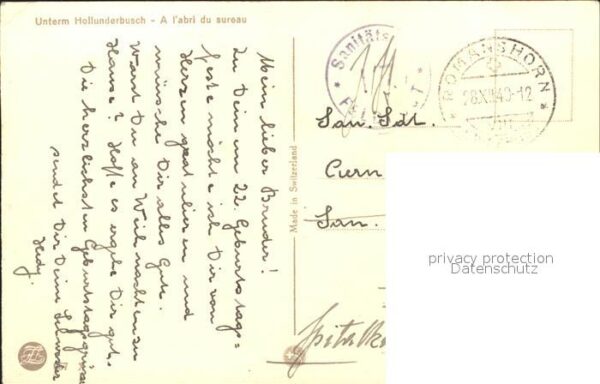 Unterm Hollunderbusch - A l'abri du sureau
Mein lieber Bruder!
Zu Deinem 22. Geburtstags=
feste möchte ich Dir von
Herzen gratulieren und
wünsche Dir alles Gute.
Warst Du an Weihnachten zu
Hause? Hoffe es ergehe Dir gut.
Die herzlichsten Geburtstagsgrüsse
sendet Dir Deine Schwester
Hedy.
Made in Switzerland
Sanitäts
ROMANSHORN
28.XII.40-12
San. Sdt.
San.
privacy protection
Datenschutz